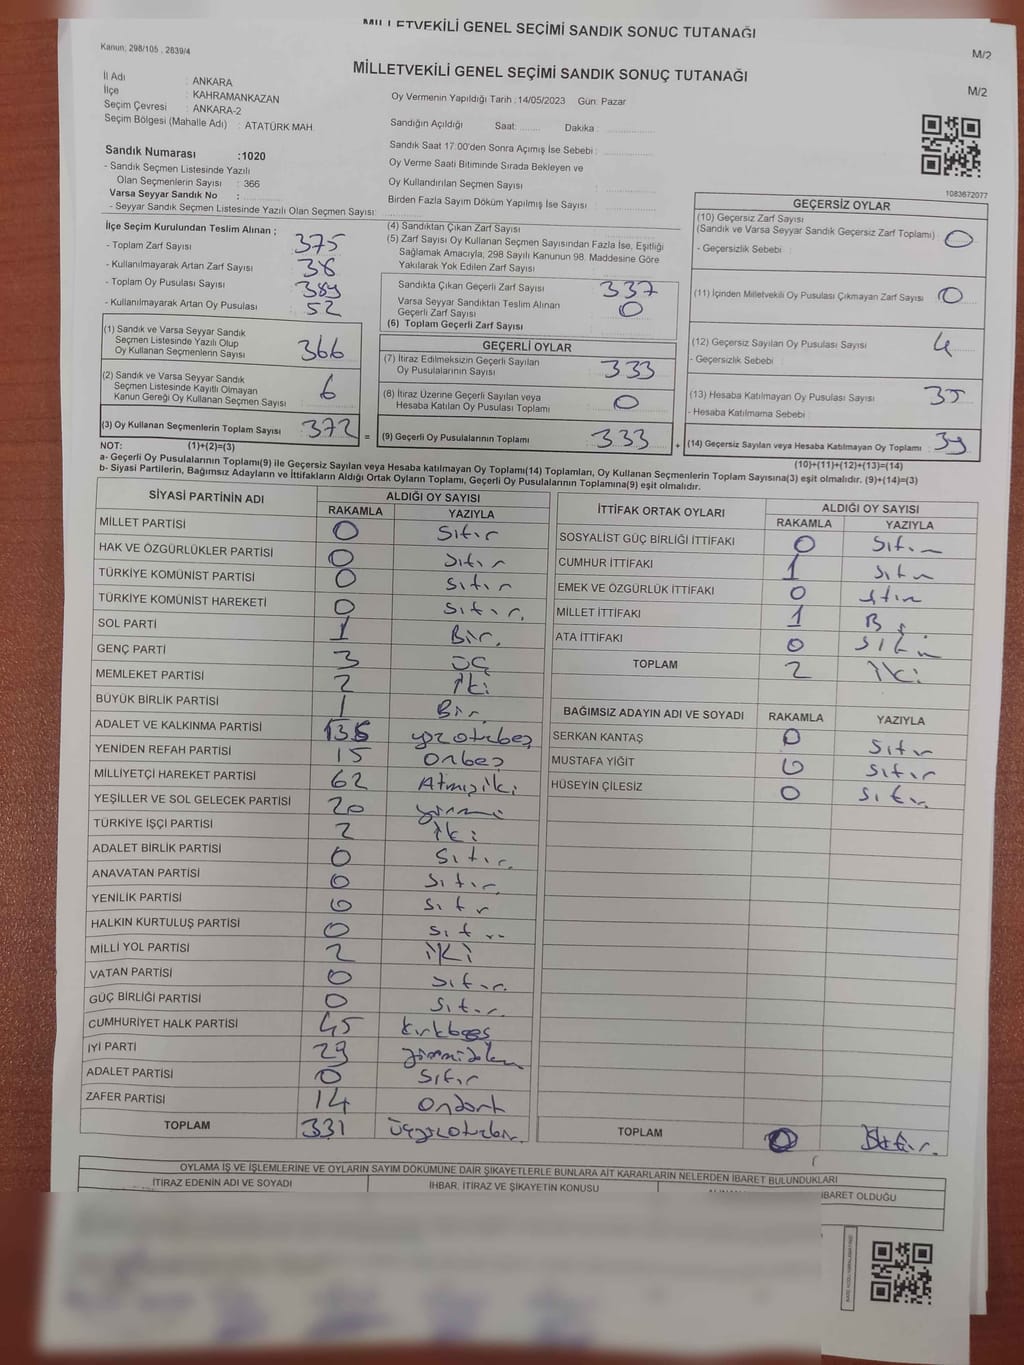 MİLLETVEKİLİ GENEL SEÇİMİ SANDIK SONUÇ TUTANAĞI
M/2
Kanun; 298/105 , 2839/4
MİLLETVEKİLİ GENEL SEÇİMİ SANDIK SONUÇ TUTANAĞI
M/2
İl Adı : ANKARA
İlçe : KAHRAMANKAZAN
Seçim Çevresi : ANKARA-2
Seçim Bölgesi (Mahalle Adı) : ATATÜRK MAH.
Oy Vermenin Yapıldığı Tarih : 14/05/2023 Gün: Pazar
Sandığın Açıldığı Saat: Dakika :
Sandık Saat 17.00'den Sonra Açımış İse Sebebi :
Oy Verme Saati Bitiminde Sırada Bekleyen ve
Oy Kullandırılan Seçmen Sayısı :
Birden Fazla Sayım Döküm Yapılmış İse Sayısı :
Sandık Numarası :1020
- Sandık Seçmen Listesinde Yazılı
Olan Seçmenlerin Sayısı : 366
Varsa Seyyar Sandık No :
- Seyyar Sandık Seçmen Listesinde Yazılı Olan Seçmen Sayısı:
1083672077
İlçe Seçim Kurulundan Teslim Alınan ;
- Toplam Zarf Sayısı 375
- Kullanılmayarak Artan Zarf Sayısı 38
- Toplam Oy Pusulası Sayısı 389
- Kullanılmayarak Artan Oy Pusulası 52
(1) Sandık ve Varsa Seyyar Sandık
Seçmen Listesinde Yazılı Olup
Oy Kullanan Seçmenlerin Sayısı 366
(2) Sandık ve Varsa Seyyar Sandık
Seçmen Listesinde Kayıtlı Olmayan
Kanun Gereği Oy Kullanan Seçmen Sayısı 6
(3) Oy Kullanan Seçmenlerin Toplam Sayısı 372 =
(4) Sandıktan Çıkan Zarf Sayısı
(5) Zarf Sayısı Oy Kullanan Seçmen Sayısından Fazla İse, Eşitliği
Sağlamak Amacıyla; 298 Sayılı Kanunun 98. Maddesine Göre
Yakılarak Yok Edilen Zarf Sayısı
Sandıkta Çıkan Geçerli Zarf Sayısı 337
Varsa Seyyar Sandıktan Teslim Alınan
Geçerli Zarf Sayısı 0
(6) Toplam Geçerli Zarf Sayısı
GEÇERLİ OYLAR
(7) İtiraz Edilmeksizin Geçerli Sayılan
Oy Pusulalarının Sayısı 333
(8) İtiraz Üzerine Geçerli Sayılan veya
Hesaba Katılan Oy Pusulası Toplamı 0
(9) Geçerli Oy Pusulalarının Toplamı 333 +
GEÇERSİZ OYLAR
(10) Geçersiz Zarf Sayısı
(Sandık ve Varsa Seyyar Sandık Geçersiz Zarf Toplamı) 0
- Geçersizlik Sebebi :
(11) İçinden Milletvekili Oy Pusulası Çıkmayan Zarf Sayısı 0
(12) Geçersiz Sayılan Oy Pusulası Sayısı 4
- Geçersizlik Sebebi :
(13) Hesaba Katılmayan Oy Pusulası Sayısı 35
- Hesaba Katılmama Sebebi :
(14) Geçersiz Sayılan veya Hesaba Katılmayan Oy Toplamı 39
NOT: (1)+(2)=(3)
(10)+(11)+(12)+(13)=(14)
a- Geçerli Oy Pusulasının Toplamı(9) ile Geçersiz Sayılan veya Hesaba katılmayan Oy Toplamı(14) Toplamları, Oy Kullanan Seçmenlerin Toplam Sayısına(3) eşit olmalıdır. (9)+(14)=(3)
b- Siyasi Partilerin, Bağımsız Adayların ve İttifakların Aldığı Ortak Oyların Toplamı, Geçerli Oy Pusulalarının Toplamına(9) eşit olmalıdır.
SİYASİ PARTİNİN ADI ALDIĞI OY SAYISI
RAKAMLA YAZIYLA
MİLLET PARTİSİ 0 Sıfır
HAK VE ÖZGÜRLÜKLER PARTİSİ 0 Sıfır
TÜRKİYE KOMÜNİST PARTİSİ 0 Sıfır
TÜRKİYE KOMÜNİST HAREKETİ 0 Sıfır.
SOL PARTİ 1 Bir.
GENÇ PARTİ 3 üç
MEMLEKET PARTİSİ 2 iki
BÜYÜK BİRLİK PARTİSİ 1 Bir
ADALET VE KALKINMA PARTİSİ 135 yüzotuzbeş
YENİDEN REFAH PARTİSİ 15 Onbeş
MİLLİYETÇİ HAREKET PARTİSİ 62 Atmışiki
YEŞİLLER VE SOL GELECEK PARTİSİ 20 yirmi
TÜRKİYE İŞÇİ PARTİSİ 2 iki
ADALET BİRLİK PARTİSİ 0 Sıfır.
ANAVATAN PARTİSİ 0 Sıfır
YENİLİK PARTİSİ 0 Sıfır
HALKIN KURTULUŞ PARTİSİ 0 Sıfır
MİLLİ YOL PARTİSİ 2 iki
VATAN PARTİSİ 0 Sıfır.
GÜÇ BİRLİĞİ PARTİSİ 0 Sıfır.
CUMHURİYET HALK PARTİSİ 45 kırkbeş
İYİ PARTİ 29 yirmidokuz
ADALET PARTİSİ 0 Sıfır
ZAFER PARTİSİ 14 Ondört
TOPLAM 331 üçyüzotuzbir.
İTTİFAK ORTAK OYLARI ALDIĞI OY SAYISI
RAKAMLA YAZIYLA
SOSYALİST GÜÇ BİRLİĞİ İTTİFAKI 0 Sıfır
CUMHUR İTTİFAKI 1
EMEK VE ÖZGÜRLÜK İTTİFAKI 0 Sıfır
MİLLET İTTİFAKI 1
ATA İTTİFAKI 0 Sıfır
TOPLAM 2 iki
BAĞIMSIZ ADAYIN ADI VE SOYADI RAKAMLA YAZIYLA
SERKAN KANTAŞ 0 Sıfır
MUSTAFA YİĞİT 0 Sıfır
HÜSEYİN ÇİLESİZ 0 Sıfır
TOPLAM 0
OYLAMA İŞ VE İŞLEMLERİNE VE OYLARIN SAYIM DÖKÜMÜNE DAİR ŞİKAYETLERLE BUNLARA AİT KARARLARIN NELERDEN İBARET BULUNDUKLARI
İTİRAZ EDENİN ADI VE SOYADI İHBAR, İTİRAZ VE ŞİKAYETİN KONUSU İBARET OLDUĞU